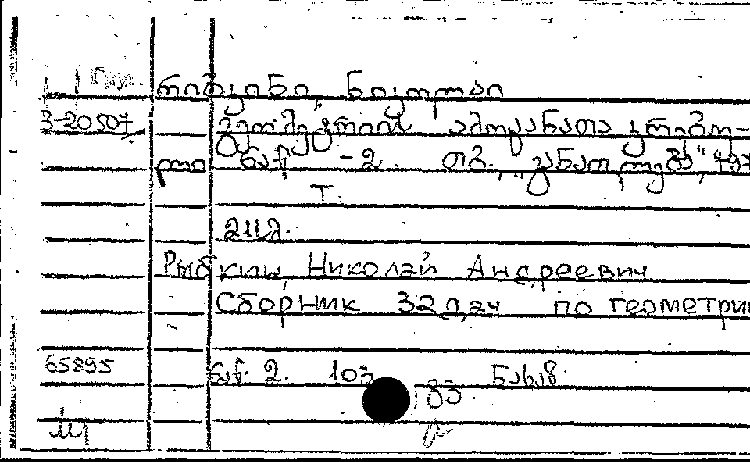 რიბკინი, ნიკოლაი
3-20507 გეომეტრიის ამოცანათა კრებუ-
ლი ნაწ -2. თბ. „განათლება", 197
T.
211გ.
Рыбкин, Николай Андреевич
Сборник задач по геометрии
65895 ნაწ. 2. 103 ნახაზ